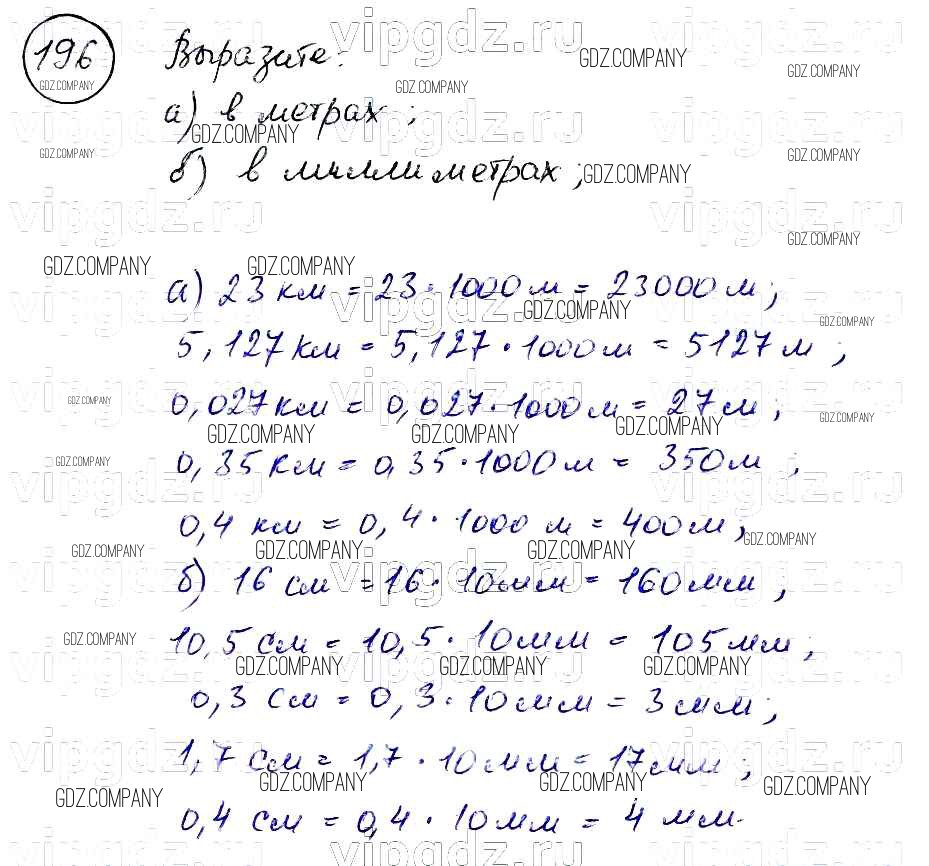 196 Выразите:
а) в метрах;
б) в миллиметрах;
а) 23 км = 23 · 1000 м = 23000 м;
5,127 км = 5,127 · 1000 м = 5127 м;
0,027 км = 0,027 · 1000 м = 27 м;
0,35 км = 0,35 · 1000 м = 350 м;
0,4 км = 0,4 · 1000 м = 400 м;
б) 16 см = 16 · 10 мм = 160 мм;
10,5 см = 10,5 · 10 мм = 105 мм;
0,3 см = 0,3 · 10 мм = 3 мм;
1,7 см = 1,7 · 10 мм = 17 мм;
0,4 см = 0,4 · 10 мм = 4 мм.
vipgdz.ru
GDZ.COMPANY